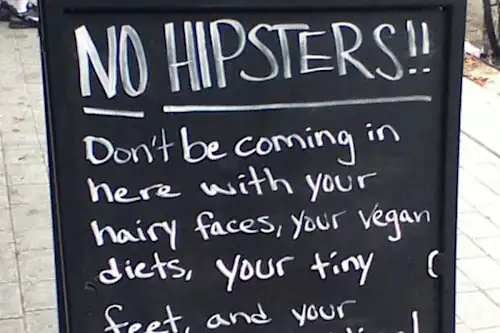 NO HIPSTERS!!
Don't be coming in
here with your
hairy faces, your vegan
diets, your tiny
feet, and your